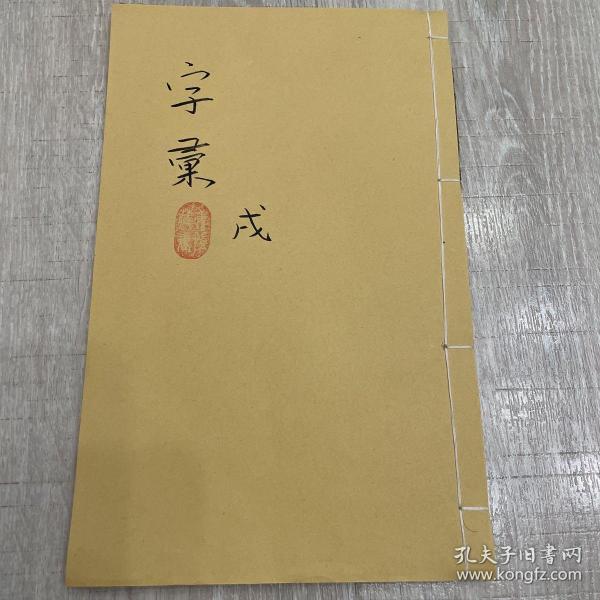 字彙
戌
孔夫子旧书网
www.kongfz.com